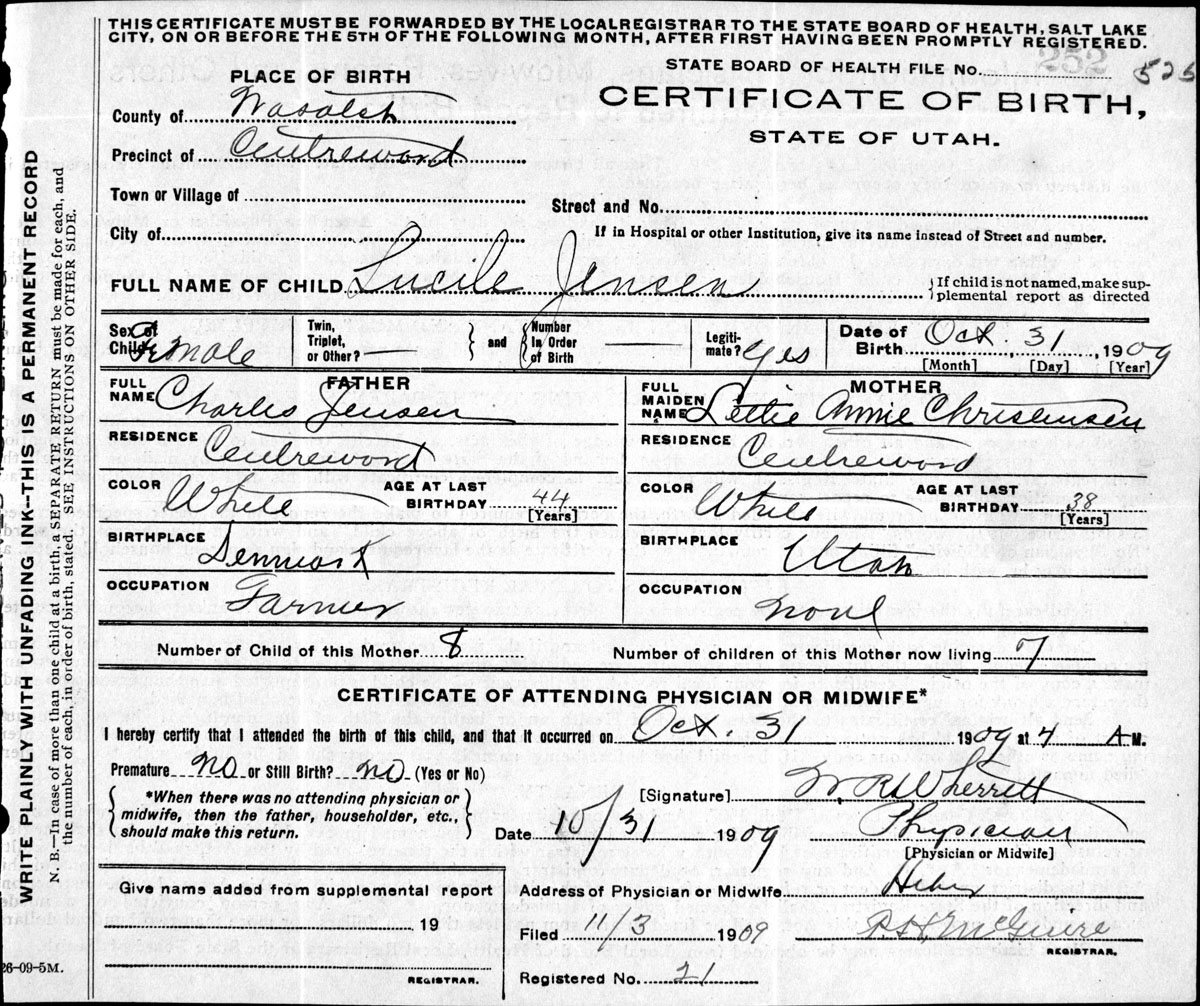 THIS CERTIFICATE MUST BE FORWARDED BY THE LOCAL REGISTRAR TO THE STATE BOARD OF HEALTH, SALT LAKE
CITY, ON OR BEFORE THE 5TH OF THE FOLLOWING MONTH, AFTER FIRST HAVING BEEN PROMPTLY REGISTERED.
STATE BOARD OF HEALTH FILE NO. 252 525
PLACE OF BIRTH
CERTIFICATE OF BIRTH,
STATE OF UTAH.
County of Wasatch
Precinct of Centreword
Town or Village of
Street and No.
City of
If in Hospital or other Institution, give its name instead of Street and number.
FULL NAME OF CHILD Lucile Jensen
If child is not named, make sup-
plemental report as directed
Sex of Child Female
Twin, Triplet, or Other? and Number In Order of Birth
Legiti-mate? yes
Date of Birth Oct 31, 1909
[Month] [Day] [Year]
FATHER
FULL NAME Charles Jensen
RESIDENCE Centreword
COLOR White
AGE AT LAST BIRTHDAY 44
[Years]
BIRTHPLACE Denmark
OCCUPATION Farmer
MOTHER
FULL MAIDEN NAME Lettie Annie Christensen
RESIDENCE Centreword
COLOR White
AGE AT LAST BIRTHDAY 38
[Years]
BIRTHPLACE Utah
OCCUPATION none
Number of Child of this Mother 8
Number of children of this Mother now living 7
CERTIFICATE OF ATTENDING PHYSICIAN OR MIDWIFE*
I hereby certify that I attended the birth of this child, and that it occurred on Oct. 31 1909 at 4 A M.
Premature No or Still Birth? No (Yes or No)
*When there was no attending physician or
midwife, then the father, householder, etc.,
should make this return.
[Signature] W. R. Wherritt
Date 10/31 1909
Physician
[Physician or Midwife]
Give name added from supplemental report
19
REGISTRAR.
Address of Physician or Midwife Heber
Filed 11/3 1909
McGuire
REGISTRAR.
Registered No. 21
26-09-5M.
WRITE PLAINLY WITH UNFADING INK—THIS IS A PERMANENT RECORD
N. B.—In case of more than one child at a birth, SEPARATE RETURN must be made for each, and
the number of each, in order of birth, stated. SEE INSTRUCTIONS ON OTHER SIDE.